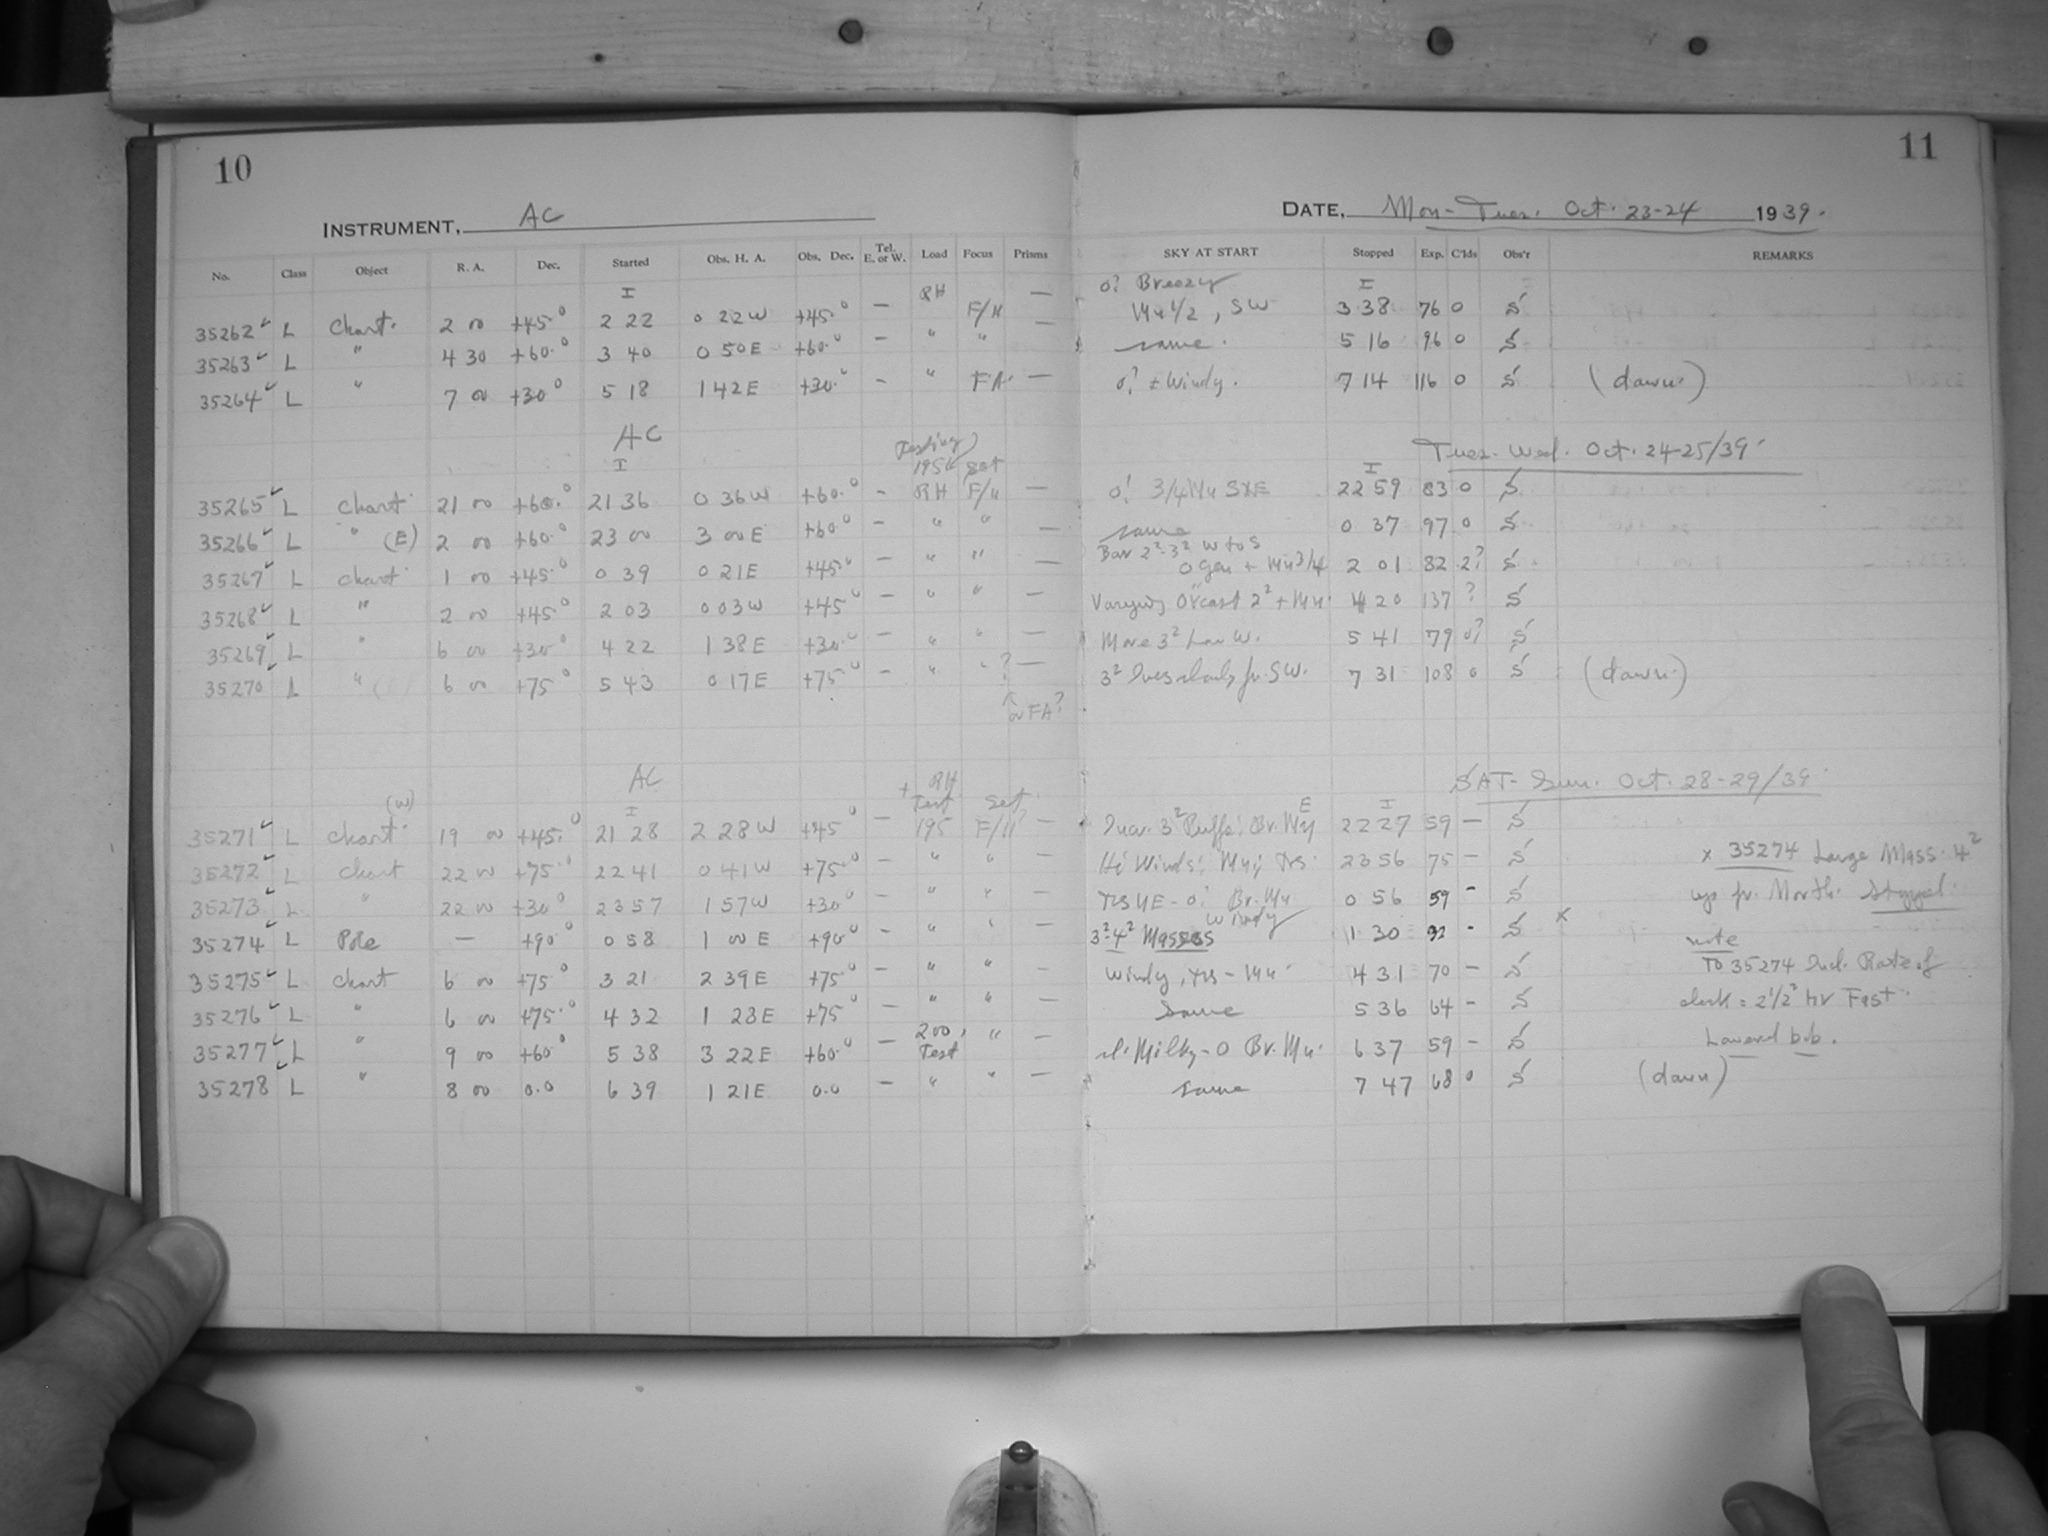 10
11
INSTRUMENT, AC
DATE, Mon-Tues. Oct. 23-24 1939.
No. Class Object R. A. Dec. Started Obs. H. A. Obs. Dec. Tel. E. or W. Load Focus Prisms SKY AT START Stopped Exp. C'lds Obs'r REMARKS
I RH — 0? Breezy I
35262 L Chart. 2 00 +45.° 2 22 0 22W +45.° — F/H Mn 1/2, SW 3 38 76 0 S
35263 L " 4 30 +60.° 3 40 0 50E +60.° — " " — same. 5 16 96 0 S
35264 L " 7 00 +30° 5 18 1 42E +30.° — " FA. — 0? + Windy. 7 14 116 0 S (dawn.)
AC Tues-Wed. Oct. 24-25/39.
I Testing 195 Set I
35265 L Chart 21 00 +60.° 21 36 0 36W +60.° — RH F/H — 0! 3/4 Mn SXE 22 59 83 0 S
35266 L " (E) 2 00 +60.° 23 00 3 00E +60.° — " " — same 0 37 97 0 S
35267 L chart 1 00 +45.° 0 39 0 21E +45.° — " " — Bar 2²-3² W to S 0 Gen + Mn 3/4 2 01 82 2? S
35268 L " 2 00 +45.° 2 03 0 03W +45° — " " — Varying O'rcast 2² + Mn. 4 20 137 ? S
35269 L " 6 00 +30° 4 22 1 38E +30.° — " " — More 3² Low W. 5 41 79 0? S
35270 L " 6 00 +75° 5 43 0 17E +75° — " " ? — 3² fr. SW. 7 31 108 0 S (dawn.)
↑ or FA?
AC SAT-Sun. Oct. 28-29/39
(W) I + RH Test Set E I
35271 L Chart. 19 00 +45.° 21 28 2 28W +45° — 195 F/H — 3² Puffs! Br. Mn 22 27 59 — S
35272 L chart 22 00 +75.° 22 41 0 41W +75.° — " " — Hi Winds! Mn; 23 56 75 — S
x 35274 Large Mass. 4²
35273 L " 22 00 +30° 23 57 1 57W +30° — " " — NE - 0! Br. Mn Windy 0 56 59 - S
up fr. North. Stopped.
35274 L Pole — +90° 0 58 1 00E +90° — " " — 3²-4² Masses 1 30 32 - S x
note
35275 L chart 6 00 +75° 3 21 2 39E +75.° — " " — Windy, - Mn. 4 31 70 — S
To 35274 Incl. Rate of
35276 L " 6 00 +75.° 4 32 1 28E +75° — " " — Same 5 36 64 - S
clock = 2 1/2ˢ hr Fast.
35277 L " 9 00 +60° 5 38 3 22E +60.° — 200, Test " — sl. Milky - 0 Br. Mn. 6 37 59 - S
Lowered bob.
35278 L " 8 00 0.0 6 39 1 21E 0.0 — " " — same 7 47 68 0 S (dawn)